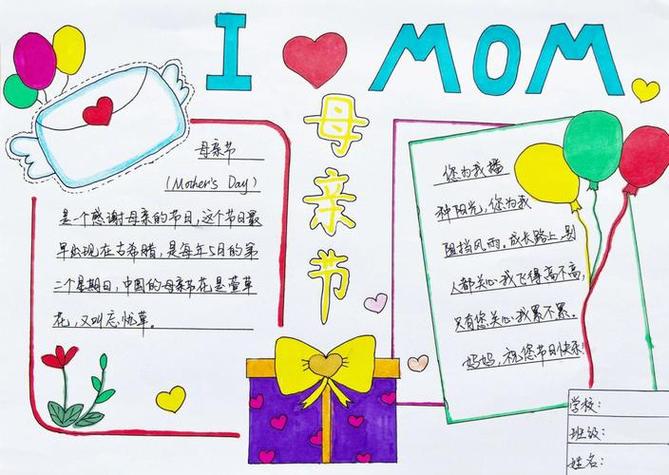 I MOM
母亲节
母亲节
(Mother's Day)
是一个感谢母亲的节日,这个节日最
早出现在古希腊,是每年5月的第
二个星期日,中国的母亲节花是萱草
花,又叫忘忧草。
您为我播
种阳光,您为我
阻挡风雨。成长路上,别
人都关心我飞得高不高,
只有您关心我累不累。
妈妈,祝您节日快乐!
学校:
班级:
姓名: